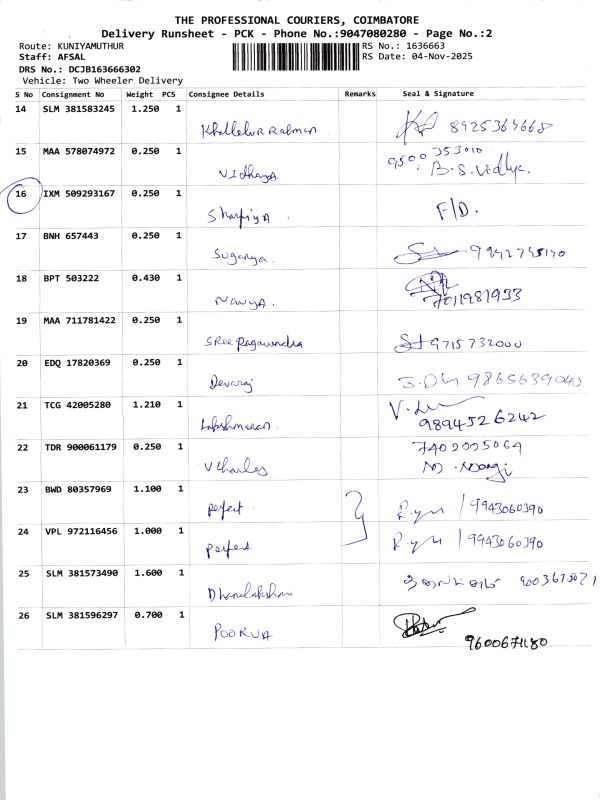 THE PROFESSIONAL COURIERS, COIMBATORE
Delivery Runsheet - PCK - Phone No.:9047080280 - Page No.:2
Route: KUNIYAMUTHUR
RS No.: 1636663
Staff: AFSAL
RS Date: 04-Nov-2025
DRS No.: DCJB163666302
Vehicle: Two Wheeler Delivery
S No Consignment No Weight PCS Consignee Details Remarks Seal & Signature
14 SLM 381583245 1.250 1
Rahman 8925367668
15 MAA 578074972 0.250 1
9500 353010
Vidhaya B.S. Vidhya.
16 IXM 509293167 0.250 1
Sharfiya F/D.
17 BNH 657443 0.250 1
Suganya. 9942745170
18 BPT 503222 0.430 1
Navya. 7011981933
19 MAA 711781422 0.250 1
Sree Ragavendra 9715732000
20 EDQ 17820369 0.250 1
Devaraj 9865689040
21 TCG 42005280 1.210 1
9894526242
22 TDR 900061179 0.250 1
7402005064
V Charles
23 BWD 80357969 1.100 1
perfect 9943060390
24 VPL 972116456 1.000 1
perfect 9943060390
25 SLM 381573490 1.600 1
Dhanalakshmi
26 SLM 381596297 0.700 1
POORVA
9600671180